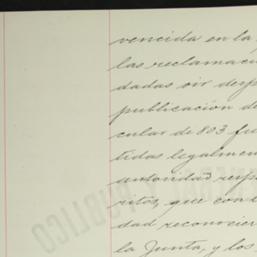 vencida en la
las reclamaci
dadas oir desp
publicación de
cular de 803 fu
tidas legalmen
autoridad resp
ritos, que con
dad reconocier
la Junta, y los
PÚBLICO